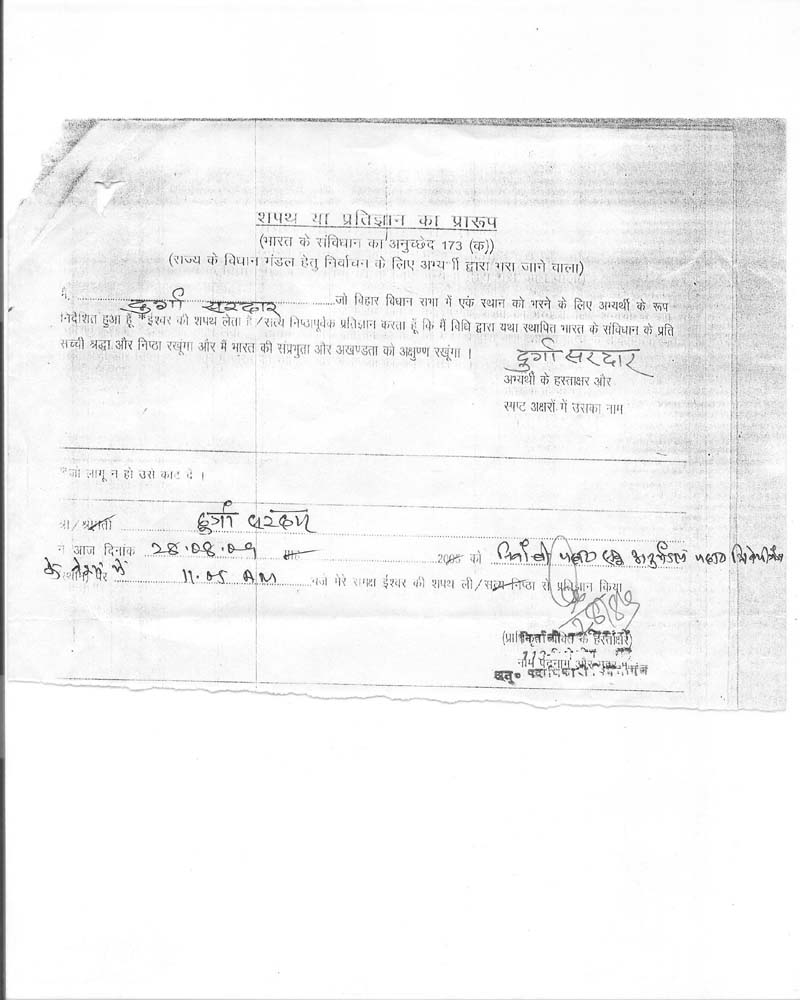 शपथ या प्रतिज्ञान का प्रारूप
(भारत के संविधान का अनुच्छेद 173 (क))
(राज्य के विधान मंडल हेतु निर्वाचन के लिए अभ्यर्थी द्वारा भरा जाने वाला)
मैं, दुर्गा सरदार जो बिहार विधान सभा में एक स्थान को भरने के लिए अभ्यर्थी के रूप
निर्देशित हुआ हूँ *ईश्वर की शपथ लेता हूँ/सत्य निष्ठापूर्वक प्रतिज्ञान करता हूँ कि मैं विधि द्वारा यथा स्थापित भारत के संविधान के प्रति
सच्ची श्रद्धा और निष्ठा रखूंगा और मैं भारत की संप्रभुता और अखण्डता को अक्षुण्ण रखूंगा ।
दुर्गा सरदार
अभ्यर्थी के हस्ताक्षर और
स्पष्ट अक्षरों में उसका नाम
*जो लागू न हो उसे काट दें ।
श्री/श्रीमती दुर्गा सरदार
ने आज दिनांक 28.08.09 2005 को
के वेश्म में
स्थान पर 11.05 AM बजे मेरे समक्ष ईश्वर की शपथ ली/सत्य निष्ठा से प्रतिज्ञान किया
के हस्ताक्षर)